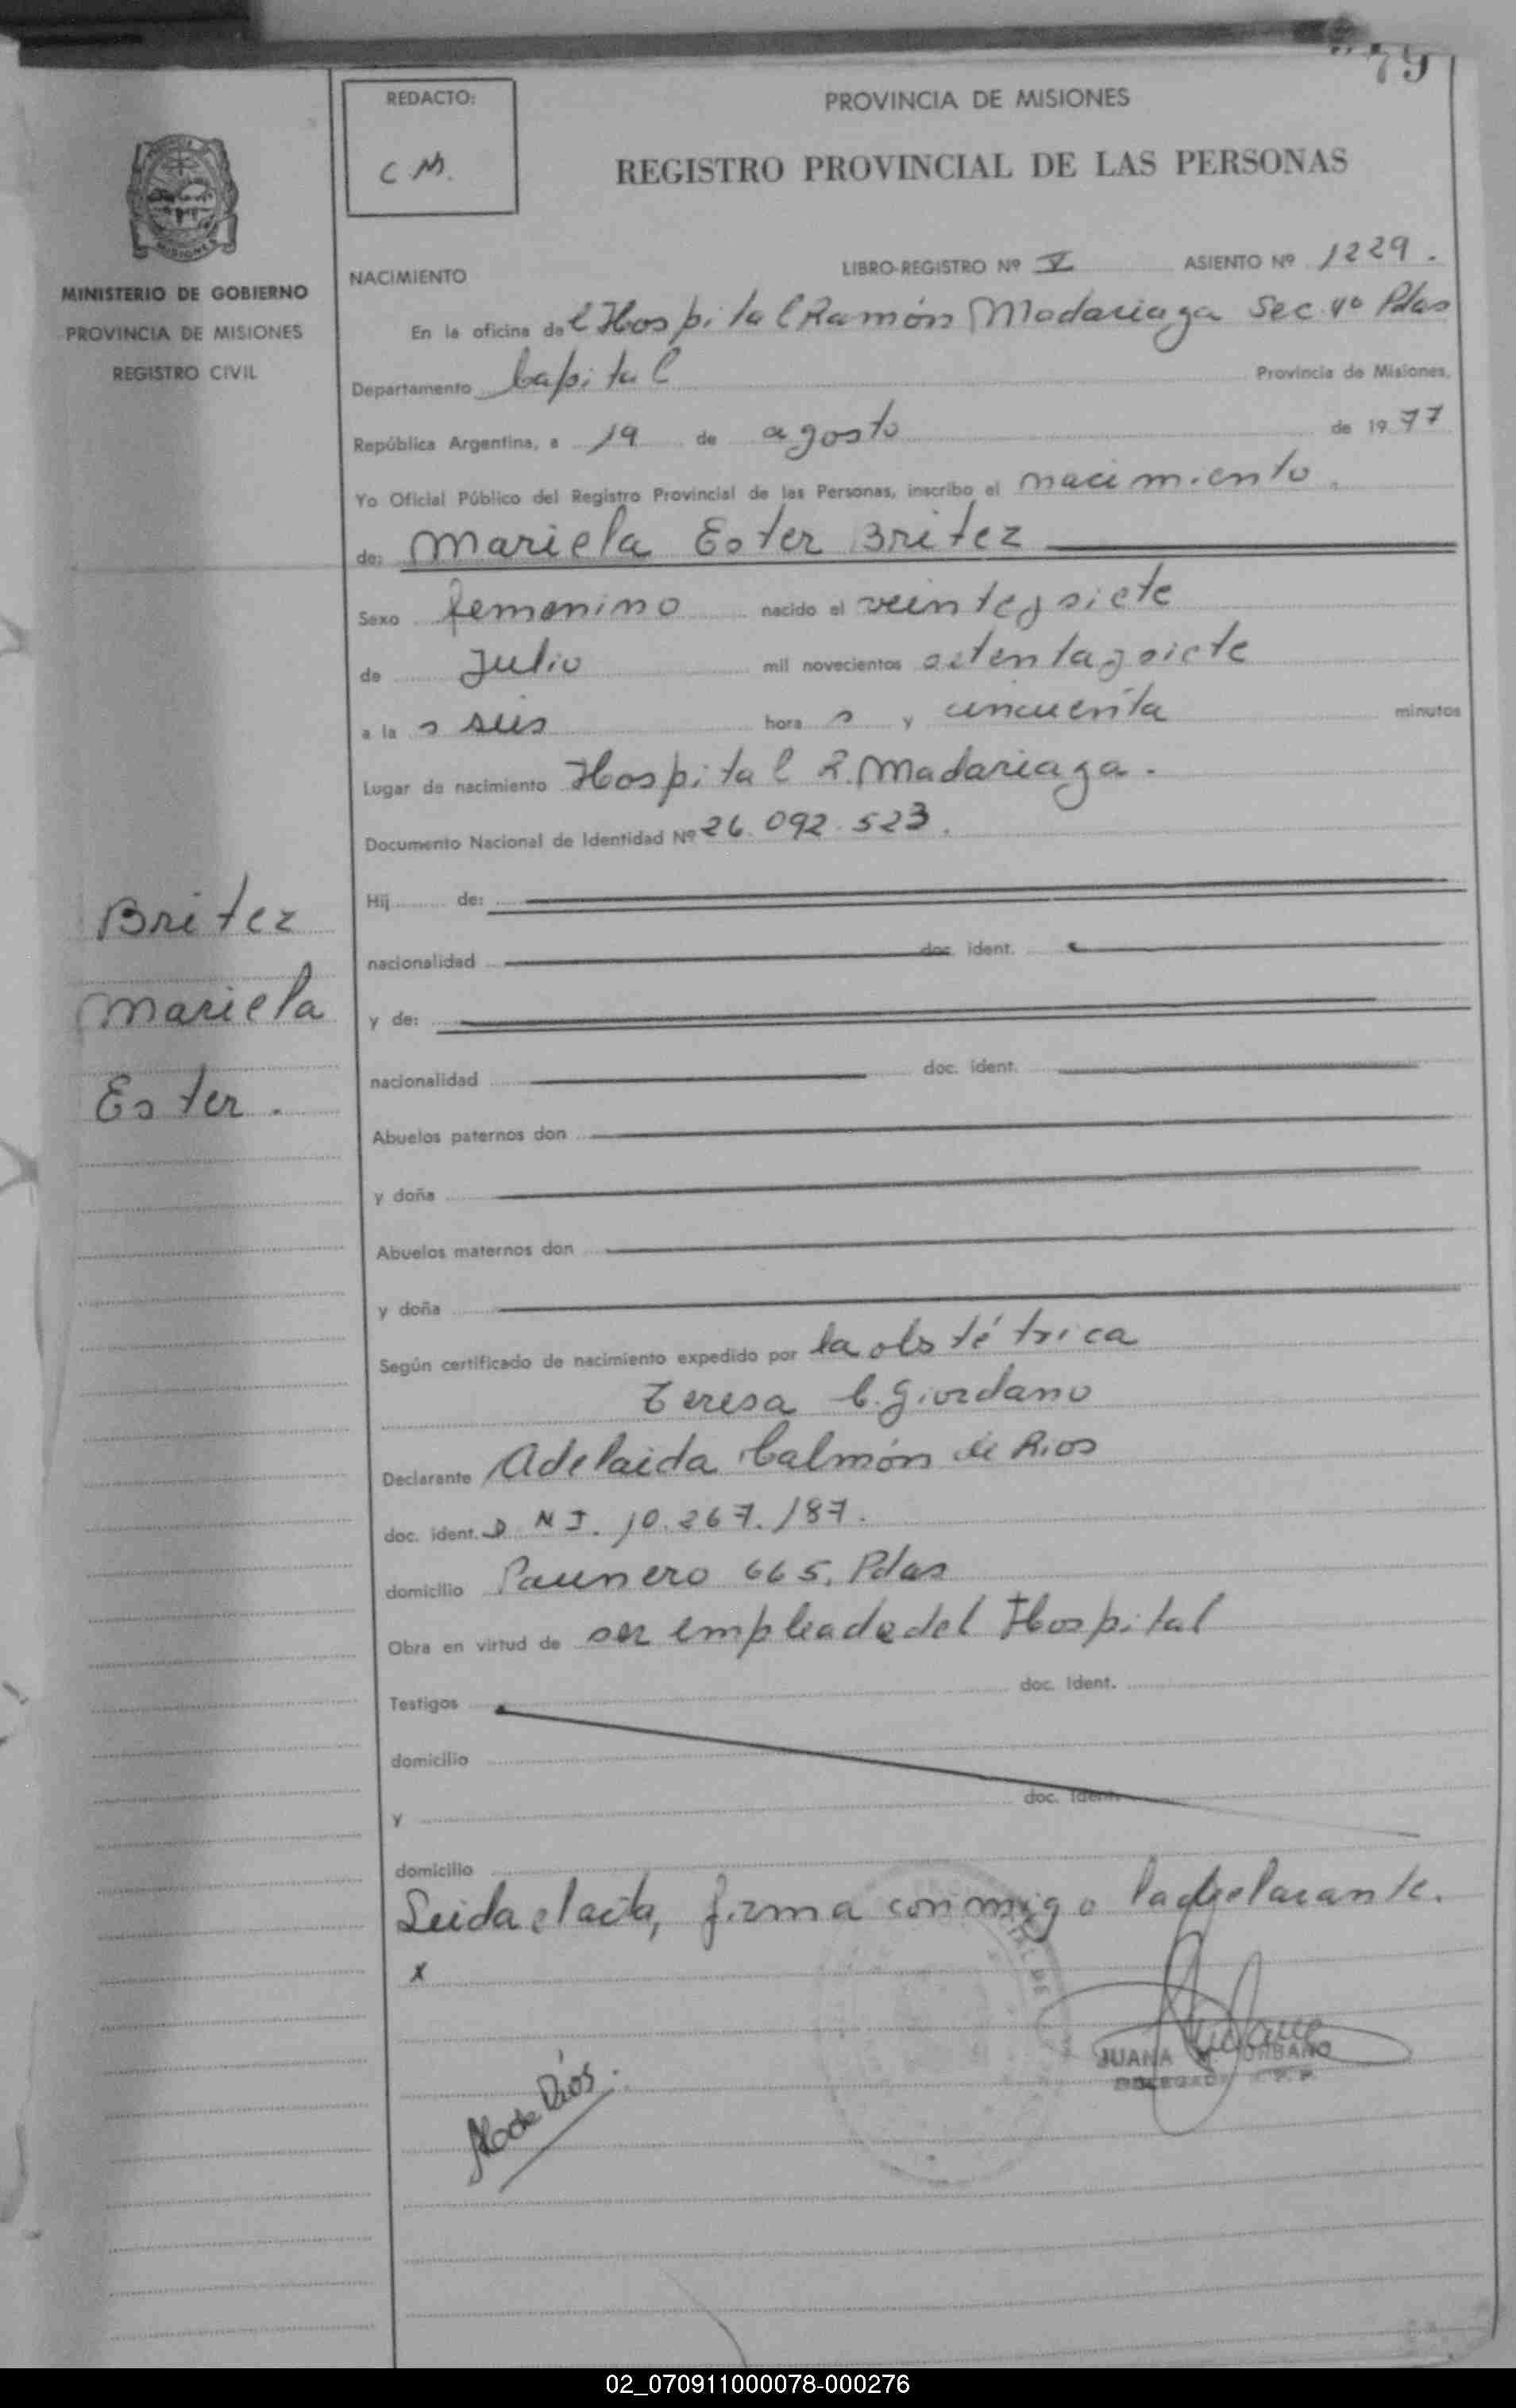 79
REDACTO:
C M.
PROVINCIA DE MISIONES
REGISTRO PROVINCIAL DE LAS PERSONAS
MISIONES
MINISTERIO DE GOBIERNO
PROVINCIA DE MISIONES
REGISTRO CIVIL
NACIMIENTO
LIBRO-REGISTRO Nº V ASIENTO Nº 1229.
En la oficina del Hospital Ramón Madariaga Sec. 4º Pdas
Departamento Capital Provincia de Misiones,
República Argentina, a 19 de agosto de 1977
Yo Oficial Público del Registro Provincial de las Personas, inscribo el nacimiento.
de: Mariela Ester Britez
Sexo femenino nacido el veinteysiete
de Julio mil novecientos setentaysiete
a la s seis hora s y cincuenta minutos
Lugar de nacimiento Hospital R. Madariaga.
Documento Nacional de Identidad Nº 26.092.523.
Britez
Mariela
Ester.
Hij de:
nacionalidad doc. ident.
y de:
nacionalidad doc. ident.
Abuelos paternos don
y doña
Abuelos maternos don
y doña
Según certificado de nacimiento expedido por la obstétrica
Teresa C. Giordano
Declarante Adelaida Calmón de Rios
doc. ident. D N I. 10.267.187.
domicilio Paunero 665. Pdas
Obra en virtud de ser empleada del Hospital
Testigos doc. Ident.
domicilio
y doc. Ident.
domicilio
Leida el acta, firma conmigo la declarante.
x
JUANA URBANO
DELEGADA
de Ríos.
02_070911000078-000276